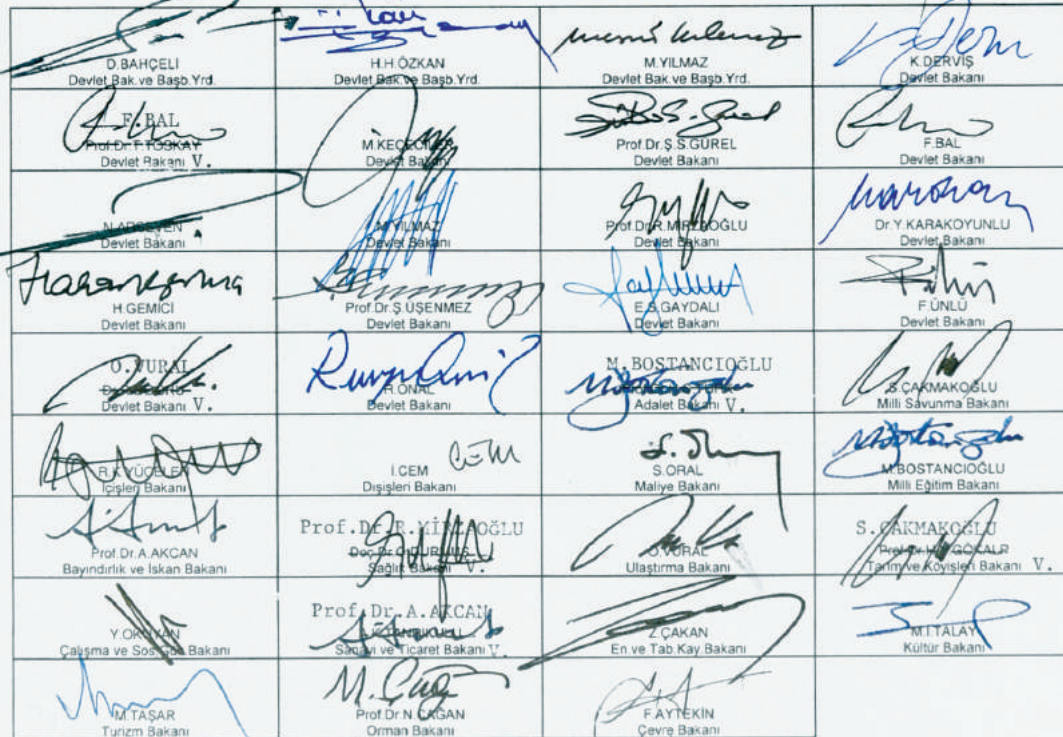 D.BAHÇELİ
Devlet Bak.ve Başb.Yrd.
H.H.ÖZKAN
Devlet Bak.ve Başb.Yrd.
M.YILMAZ
Devlet Bak.ve Başb.Yrd.
K.DERVİŞ
Devlet Bakanı
F.BAL
Prof.Dr.T.TOSKAY
Devlet Bakanı V.
M.KEÇECİLER
Devlet Bakanı
Prof.Dr.Ş.S.GÜREL
Devlet Bakanı
F.BAL
Devlet Bakanı
N.ARSEVEN
Devlet Bakanı
N.YILMAZ
Devlet Bakanı
Prof.Dr.R.MİRZAOĞLU
Devlet Bakanı
Dr.Y.KARAKOYUNLU
Devlet Bakanı
H.GEMİCİ
Devlet Bakanı
Prof.Dr.Ş.ÜŞENMEZ
Devlet Bakanı
E.S.GAYDALI
Devlet Bakanı
F.ÜNLÜ
Devlet Bakanı
O.VURAL
Devlet Bakanı V.
R.ÖNAL
Devlet Bakanı
M.BOSTANCIOĞLU
Adalet Bakanı V.
S.ÇAKMAKOĞLU
Milli Savunma Bakanı
R.K.YÜCELEN
İçişleri Bakanı
İ.CEM
Dışişleri Bakanı
S.ORAL
Maliye Bakanı
M.BOSTANCIOĞLU
Milli Eğitim Bakanı
Prof.Dr.A.AKCAN
Bayındırlık ve İskan Bakanı
Prof.Dr.R.MİRZAOĞLU
Doç.Dr.O.DURMUŞ
Sağlık Bakanı V.
O.VURAL
Ulaştırma Bakanı
S.ÇAKMAKOĞLU
Prof.Dr.H.Y.GÖKALP
Tarım ve Köyişleri Bakanı V.
Y.OKUYAN
Çalışma ve Sos.Güv.Bakanı
Prof.Dr.A.AKCAN
A.K.TANRIKULU
Sanayi ve Ticaret Bakanı V.
Z.ÇAKAN
En.ve Tab.Kay.Bakanı
M.İ.TALAY
Kültür Bakanı
M.TAŞAR
Turizm Bakanı
Prof.Dr.N.ÇAĞAN
Orman Bakanı
F.AYTEKİN
Çevre Bakanı